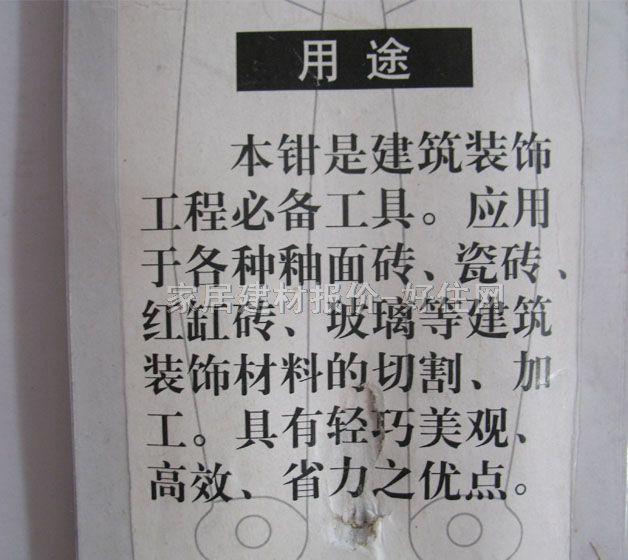 用途
本钳是建筑装饰
工程必备工具。应用
于各种釉面砖、瓷砖、
家居建材报价-好住网
红缸砖、玻璃等建筑
装饰材料的切割、加
工。具有轻巧美观、
高效、省力之优点。